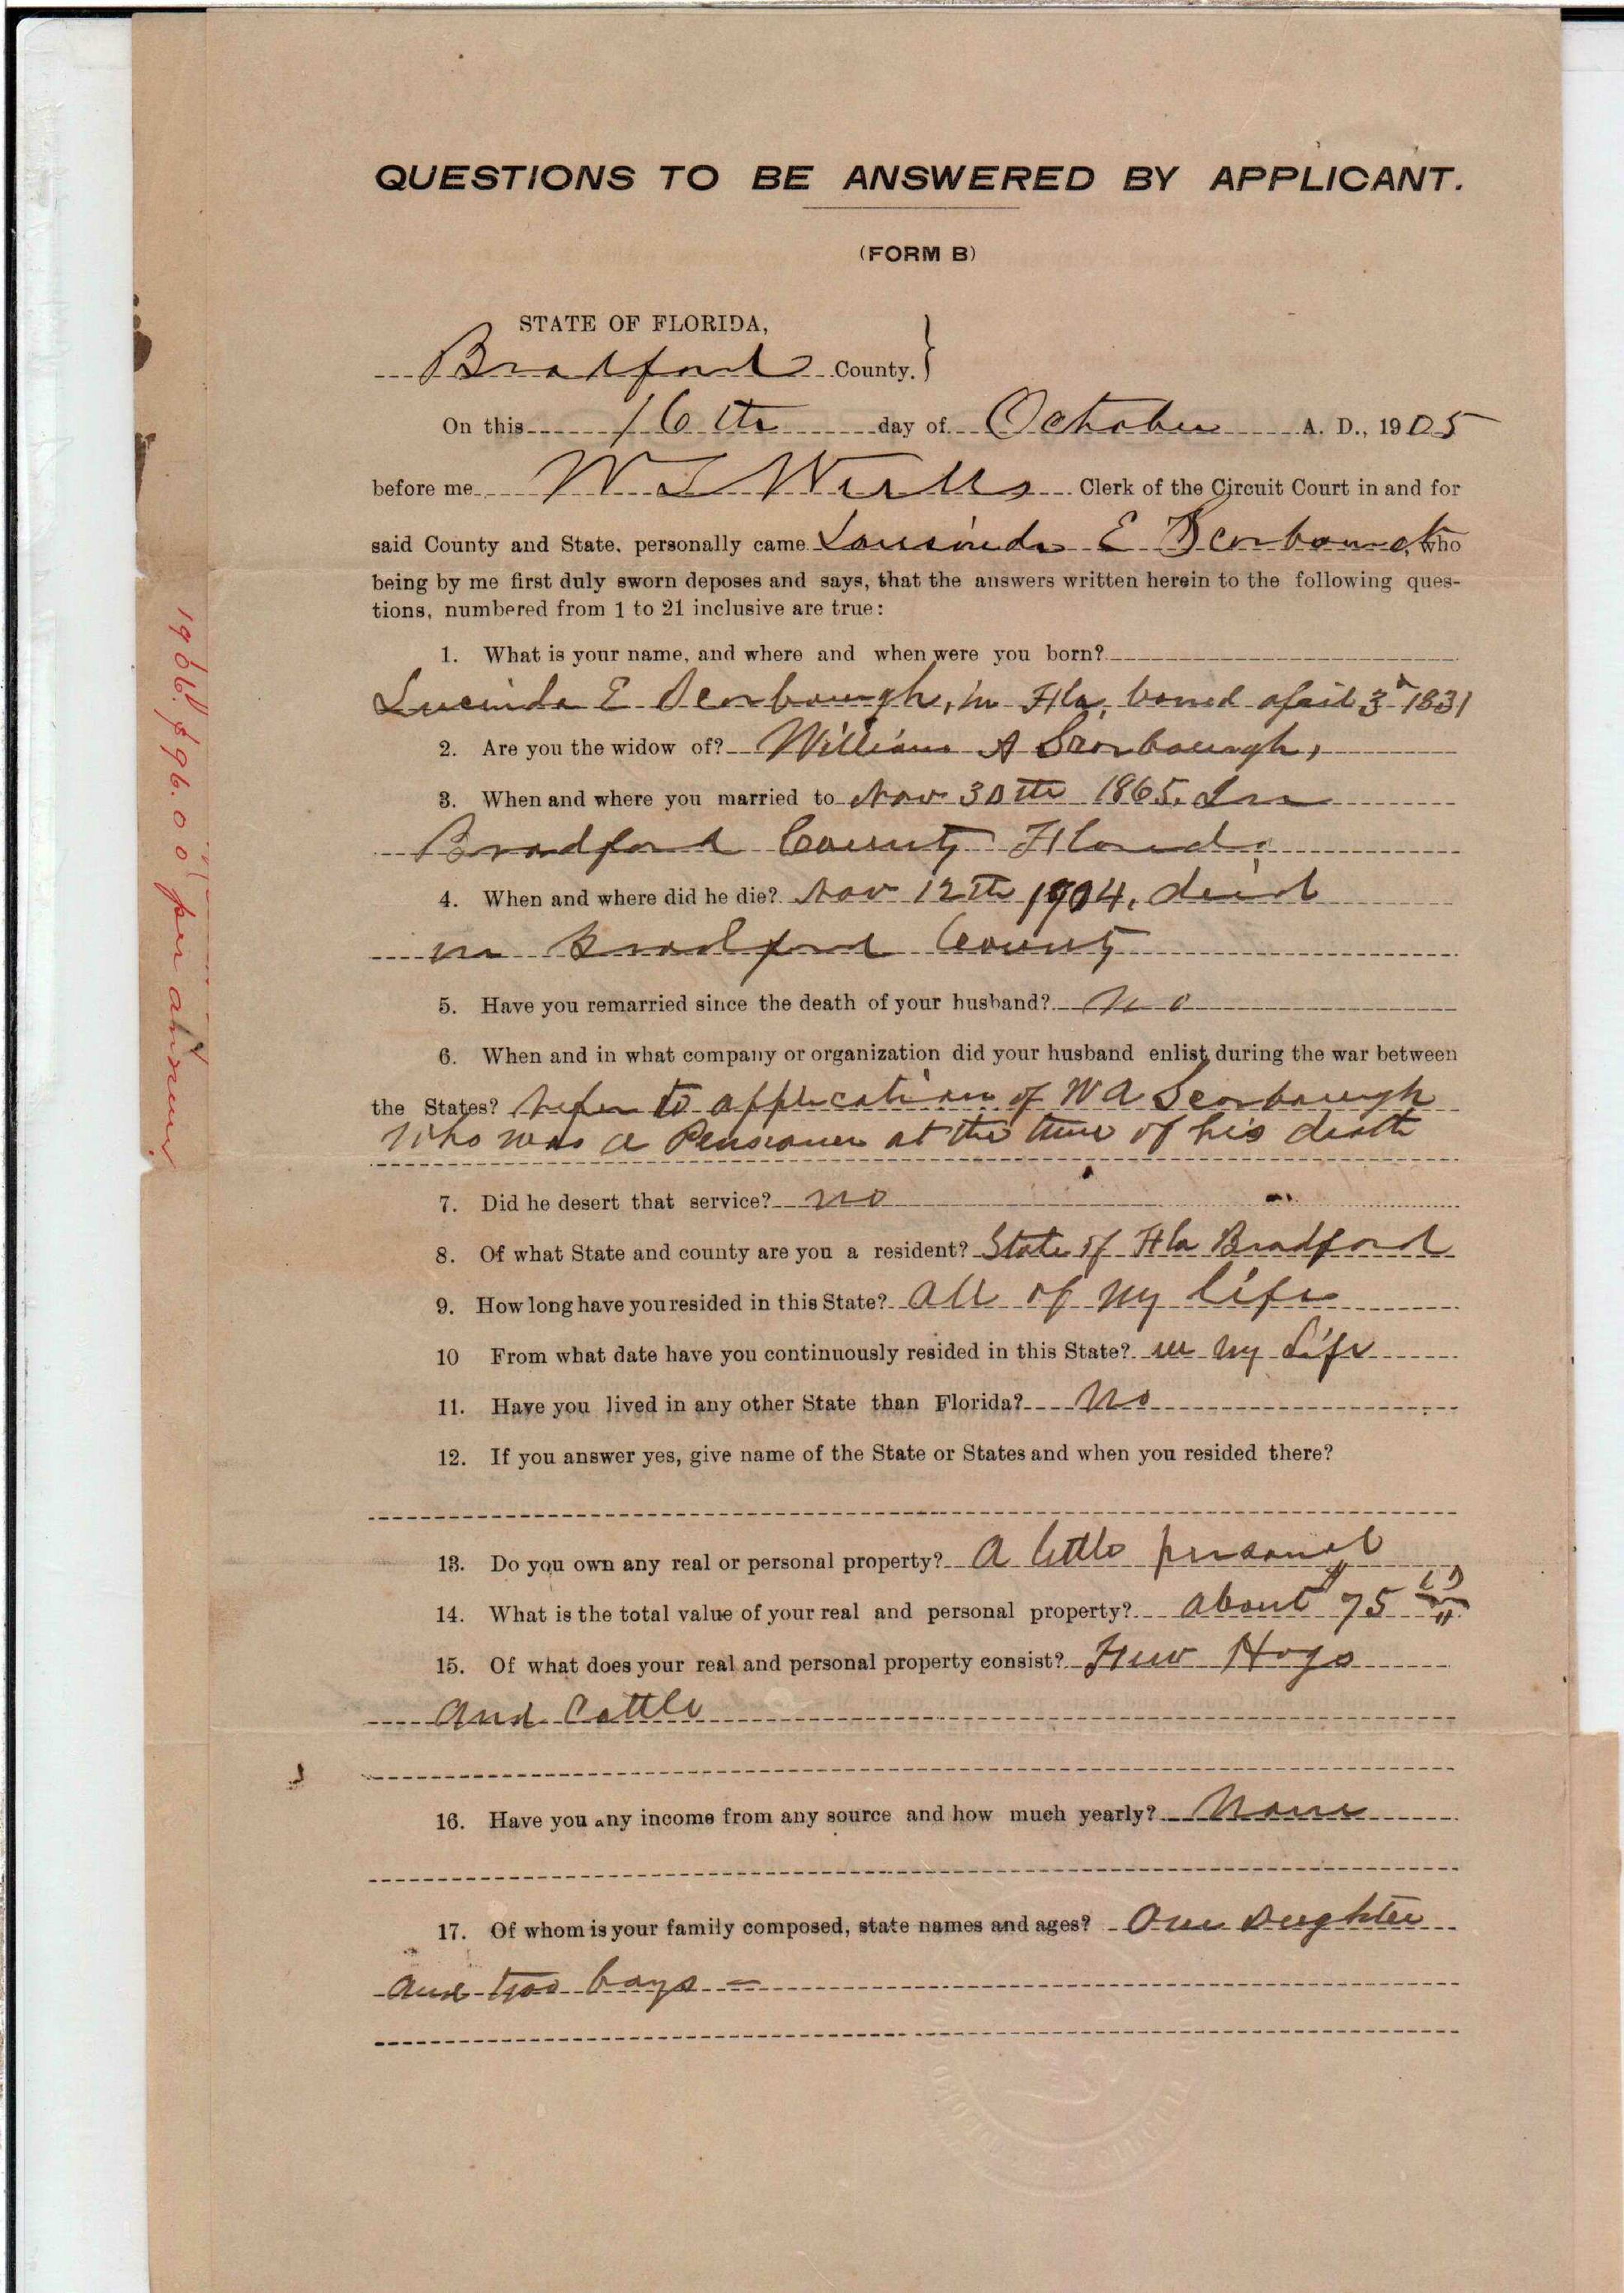 QUESTIONS TO BE ANSWERED BY APPLICANT.
(FORM B)
STATE OF FLORIDA,
Bradford County. }
On this 16th day of October A. D., 1905
before me W Wills Clerk of the Circuit Court in and for
said County and State, personally came E Scorbough, who
being by me first duly sworn deposes and says, that the answers written herein to the following ques-
tions, numbered from 1 to 21 inclusive are true:
1. What is your name, and where and when were you born?
Lucinda E Scorbough, in Fla, borned april 3d 1831
2. Are you the widow of? William A Scorbough,
3. When and where you married to Nov 30th 1865. In
Bradford County Florida
4. When and where did he die? Nov 12th 1904. deid
in Bradford County
5. Have you remarried since the death of your husband? no
6. When and in what company or organization did your husband enlist during the war between
the States? refer to application of W A Scorbough
Who was a Pensioner at the time of his death
7. Did he desert that service? no
8. Of what State and county are you a resident? State of Fla Bradford
9. How long have you resided in this State? all of my life
10 From what date have you continuously resided in this State? all my Life
11. Have you lived in any other State than Florida? No
12. If you answer yes, give name of the State or States and when you resided there?
13. Do you own any real or personal property? A little personal
14. What is the total value of your real and personal property? about $75
15. Of what does your real and personal property consist? Few Hogs
and Cattle
16. Have you any income from any source and how much yearly? None
17. Of whom is your family composed, state names and ages? One Daughter
and two boys =
1906. $96.00 per annum